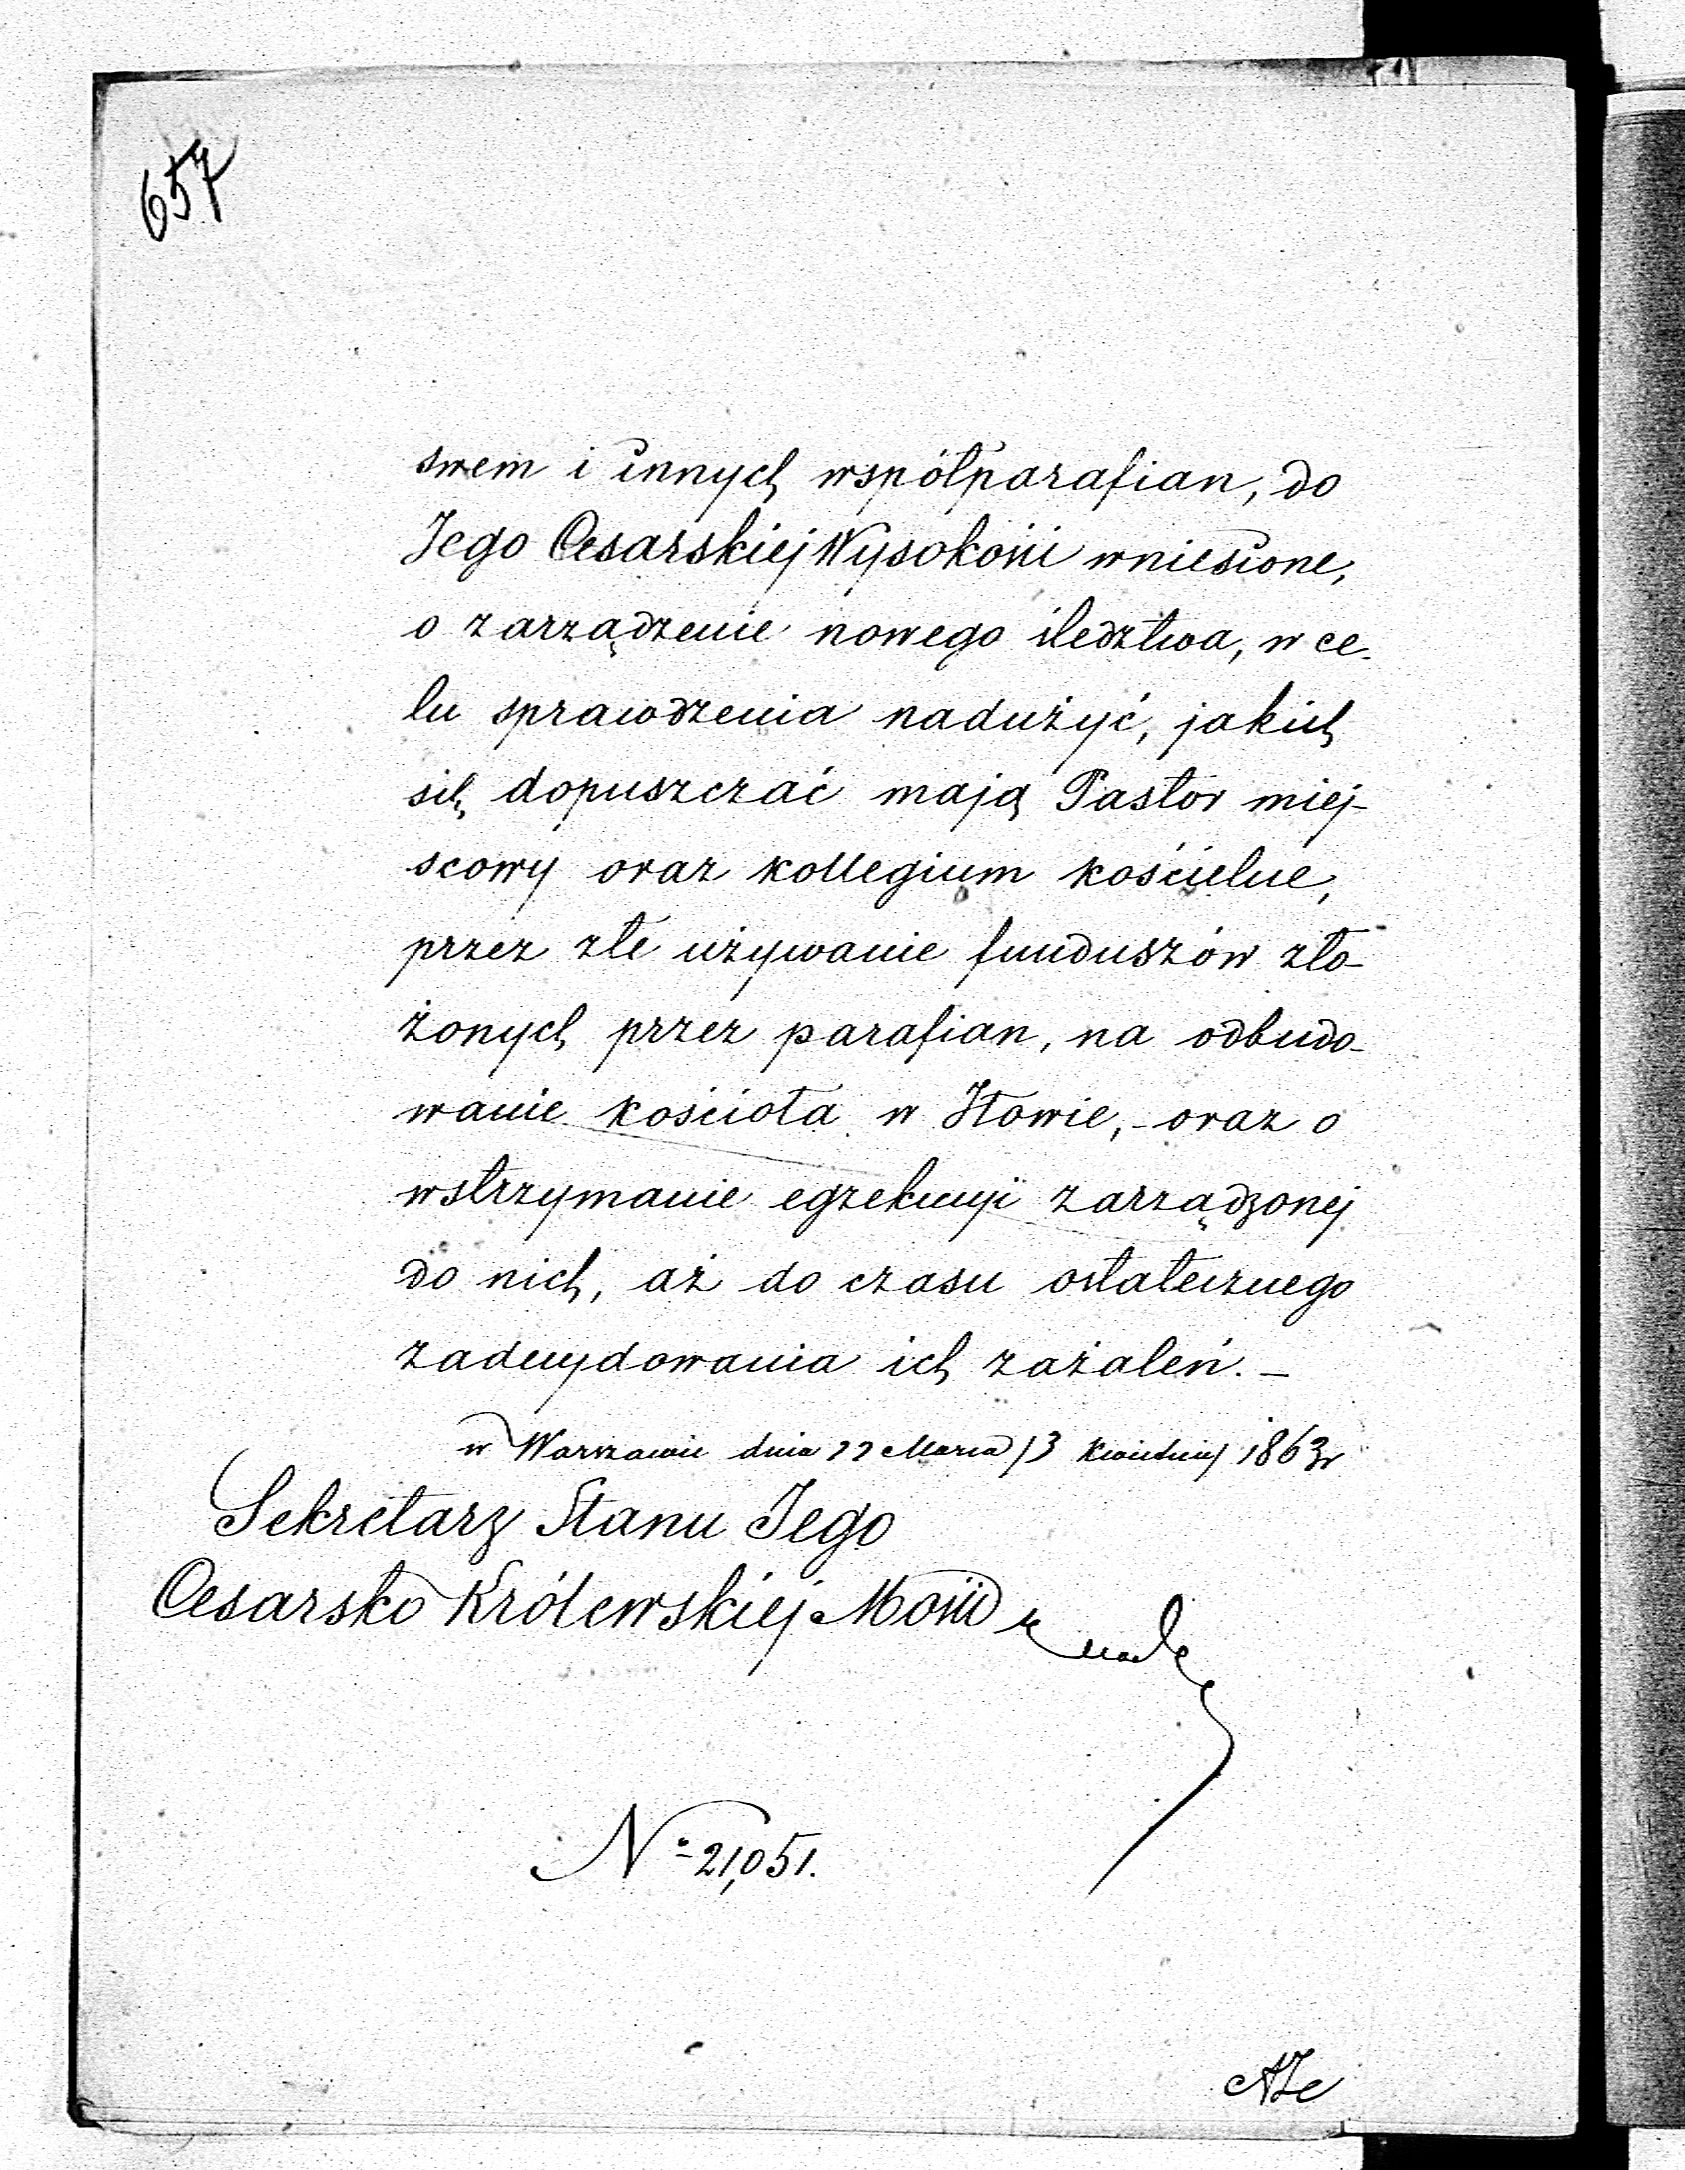 657
swem i innych współparafian, do
Jego Cesarskiej Wysokości wniesione,
o zarządzenie nowego śledztwa, w ce-
lu sprawdzenia nadużyć, jakich
się dopuszczać mają Pastor miej-
scowy oraz kollegium kościelne,
przez złe używanie funduszów zło-
żonych przez parafian, na odbudo-
wanie kościoła w Iłowie, - oraz o
wstrzymanie egzekucyi zarządzonej
do nich, aż do czasu ostatecznego
zadecydowania ich zażaleń. -
w Warszawie dnia 22 Marca /3 Kwietnia/ 1863 r
Sekretarz Stanu Jego
Cesarsko Królewskiej Mości
N° 21,051.